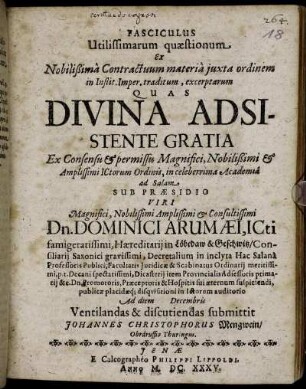 264
18
FASCICULUS
Utilissimarum quæstionum
Ex
Nobilissimâ Contractuum materiâ juxta ordinem
in Instit. Imper. traditum, excerptarum
QUAS
DIVINA ADSI-
STENTE GRATIA
Ex Consensu & permissu Magnifici, Nobilissimi &
Amplissimi ICtorum Ordinis, in celeberrima Academiâ
ad Salam
SUB PRÆSIDIO
VIRI
Magnifici, Nobilissimi Amplissimi & Consultissimi
Dn. DOMINICI ARUMÆI, ICti
famigeratissimi, Hæreditarij in Löbedaw & Geschwitz/ Con-
siliarij Saxonici gravissimi, Decretalium in inclyta Hac Salanâ
Professoris Publici, Facultatis Juridicæ & Scabinatus Ordinarij meritis-
simi, p.t. Decani spectatissimi, Dicasterij item Provincialis Adsessoris prima-
rij &c. Dn. Promotoris, Præceptoris & Hospitis sui æternum suspiciendi,
publicæ placidæq; disquisitioni in ICtorum auditorio
Ad diem Decembris
Ventilandas & discutiendas submittit
JOHANNES CHRISTOPHORUS Mengwein/
Ohrdruffio Thuringus.
JENÆ
E Calcographéo PHILIPPI LIPPOLDI,
ANNO M. DC. XXXV.